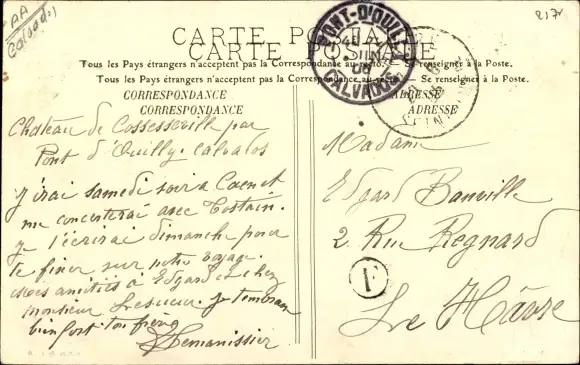 AA
Calvad.
217
CARTE POSTALE
CARTE POSTALE
Tous les Pays étrangers n'acceptent pas la Correspondance au recto. Se renseigner à la Poste.
Tous les Pays étrangers n'acceptent pas la Correspondance au recto. Se renseigner à la Poste.
CORRESPONDANCE
CORRESPONDANCE
ADRESSE
ADRESSE
PONT-D'OUILLY
JUIN
CALVADOS
Château de Cossesseville par
Pont d'Ouilly. Calvados
J'irai samedi soir à Caen et
me concerterai avec Tostain.
Je t'écrirai dimanche pour
te fixer sur notre voyage.
Mes amitiés à Edgard et chez
monsieur Lesueur. Je t'embrasse
bien fort ton frère
Lemanissier
Madame
Edgard Banville
2 Rue Regnard
F
Le Hâvre